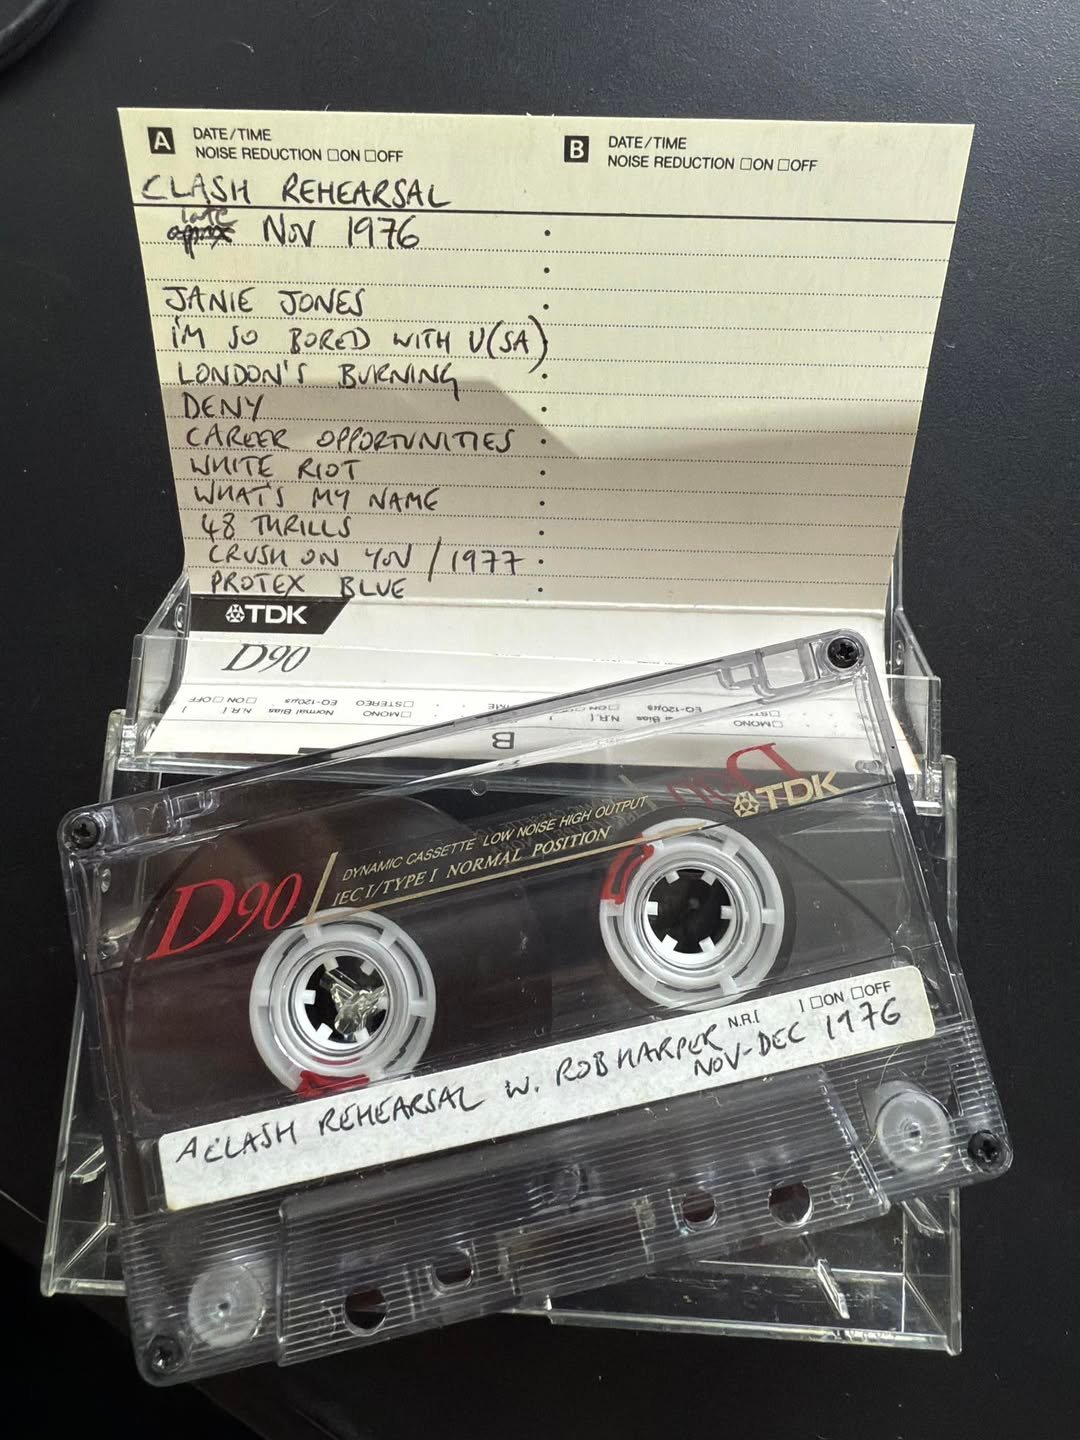 A DATE/TIME
NOISE REDUCTION □ON □OFF
B DATE/TIME
NOISE REDUCTION □ON □OFF
CLASH REHEARSAL
late
approx NOV 1976
JANIE JONES
I'M SO BORED WITH U(SA)
LONDON'S BURNING
DENY
CAREER OPPORTUNITIES
WHITE RIOT
WHAT'S MY NAME
48 THRILLS
CRUSH ON YOU / 1977
PROTEX BLUE
TDK
D90
□ON □OFF N.R.[ ]
EQ-120µs Normal Bias
□MONO □STEREO
B
D90
DYNAMIC CASSETTE LOW NOISE HIGH OUTPUT
IEC I/TYPE I NORMAL POSITION
TDK
N.R.[ ] □ON □OFF
A CLASH REHEARSAL W. ROB HARPER
NOV-DEC 1976